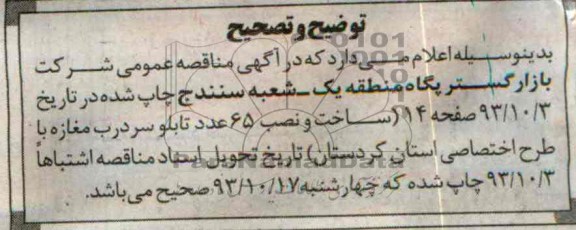 توضیح و تصحیح
بدینوسیله اعلام می دارد که در آگهی مناقصه عمومی شرکت
بازار گستر پگاه منطقه یک - شعبه سنندج چاپ شده در تاریخ
۹۳/۱۰/۳ صفحه ۱۴ (ساخت و نصب ۶۵ عدد تابلو سر درب مغازه با
طرح اختصاصی استان کردستان) تاریخ تحویل اسناد مناقصه اشتباهاً
۹۳/۱۰/۳ چاپ شده که چهارشنبه ۹۳/۱۰/۱۷ صحیح می باشد.